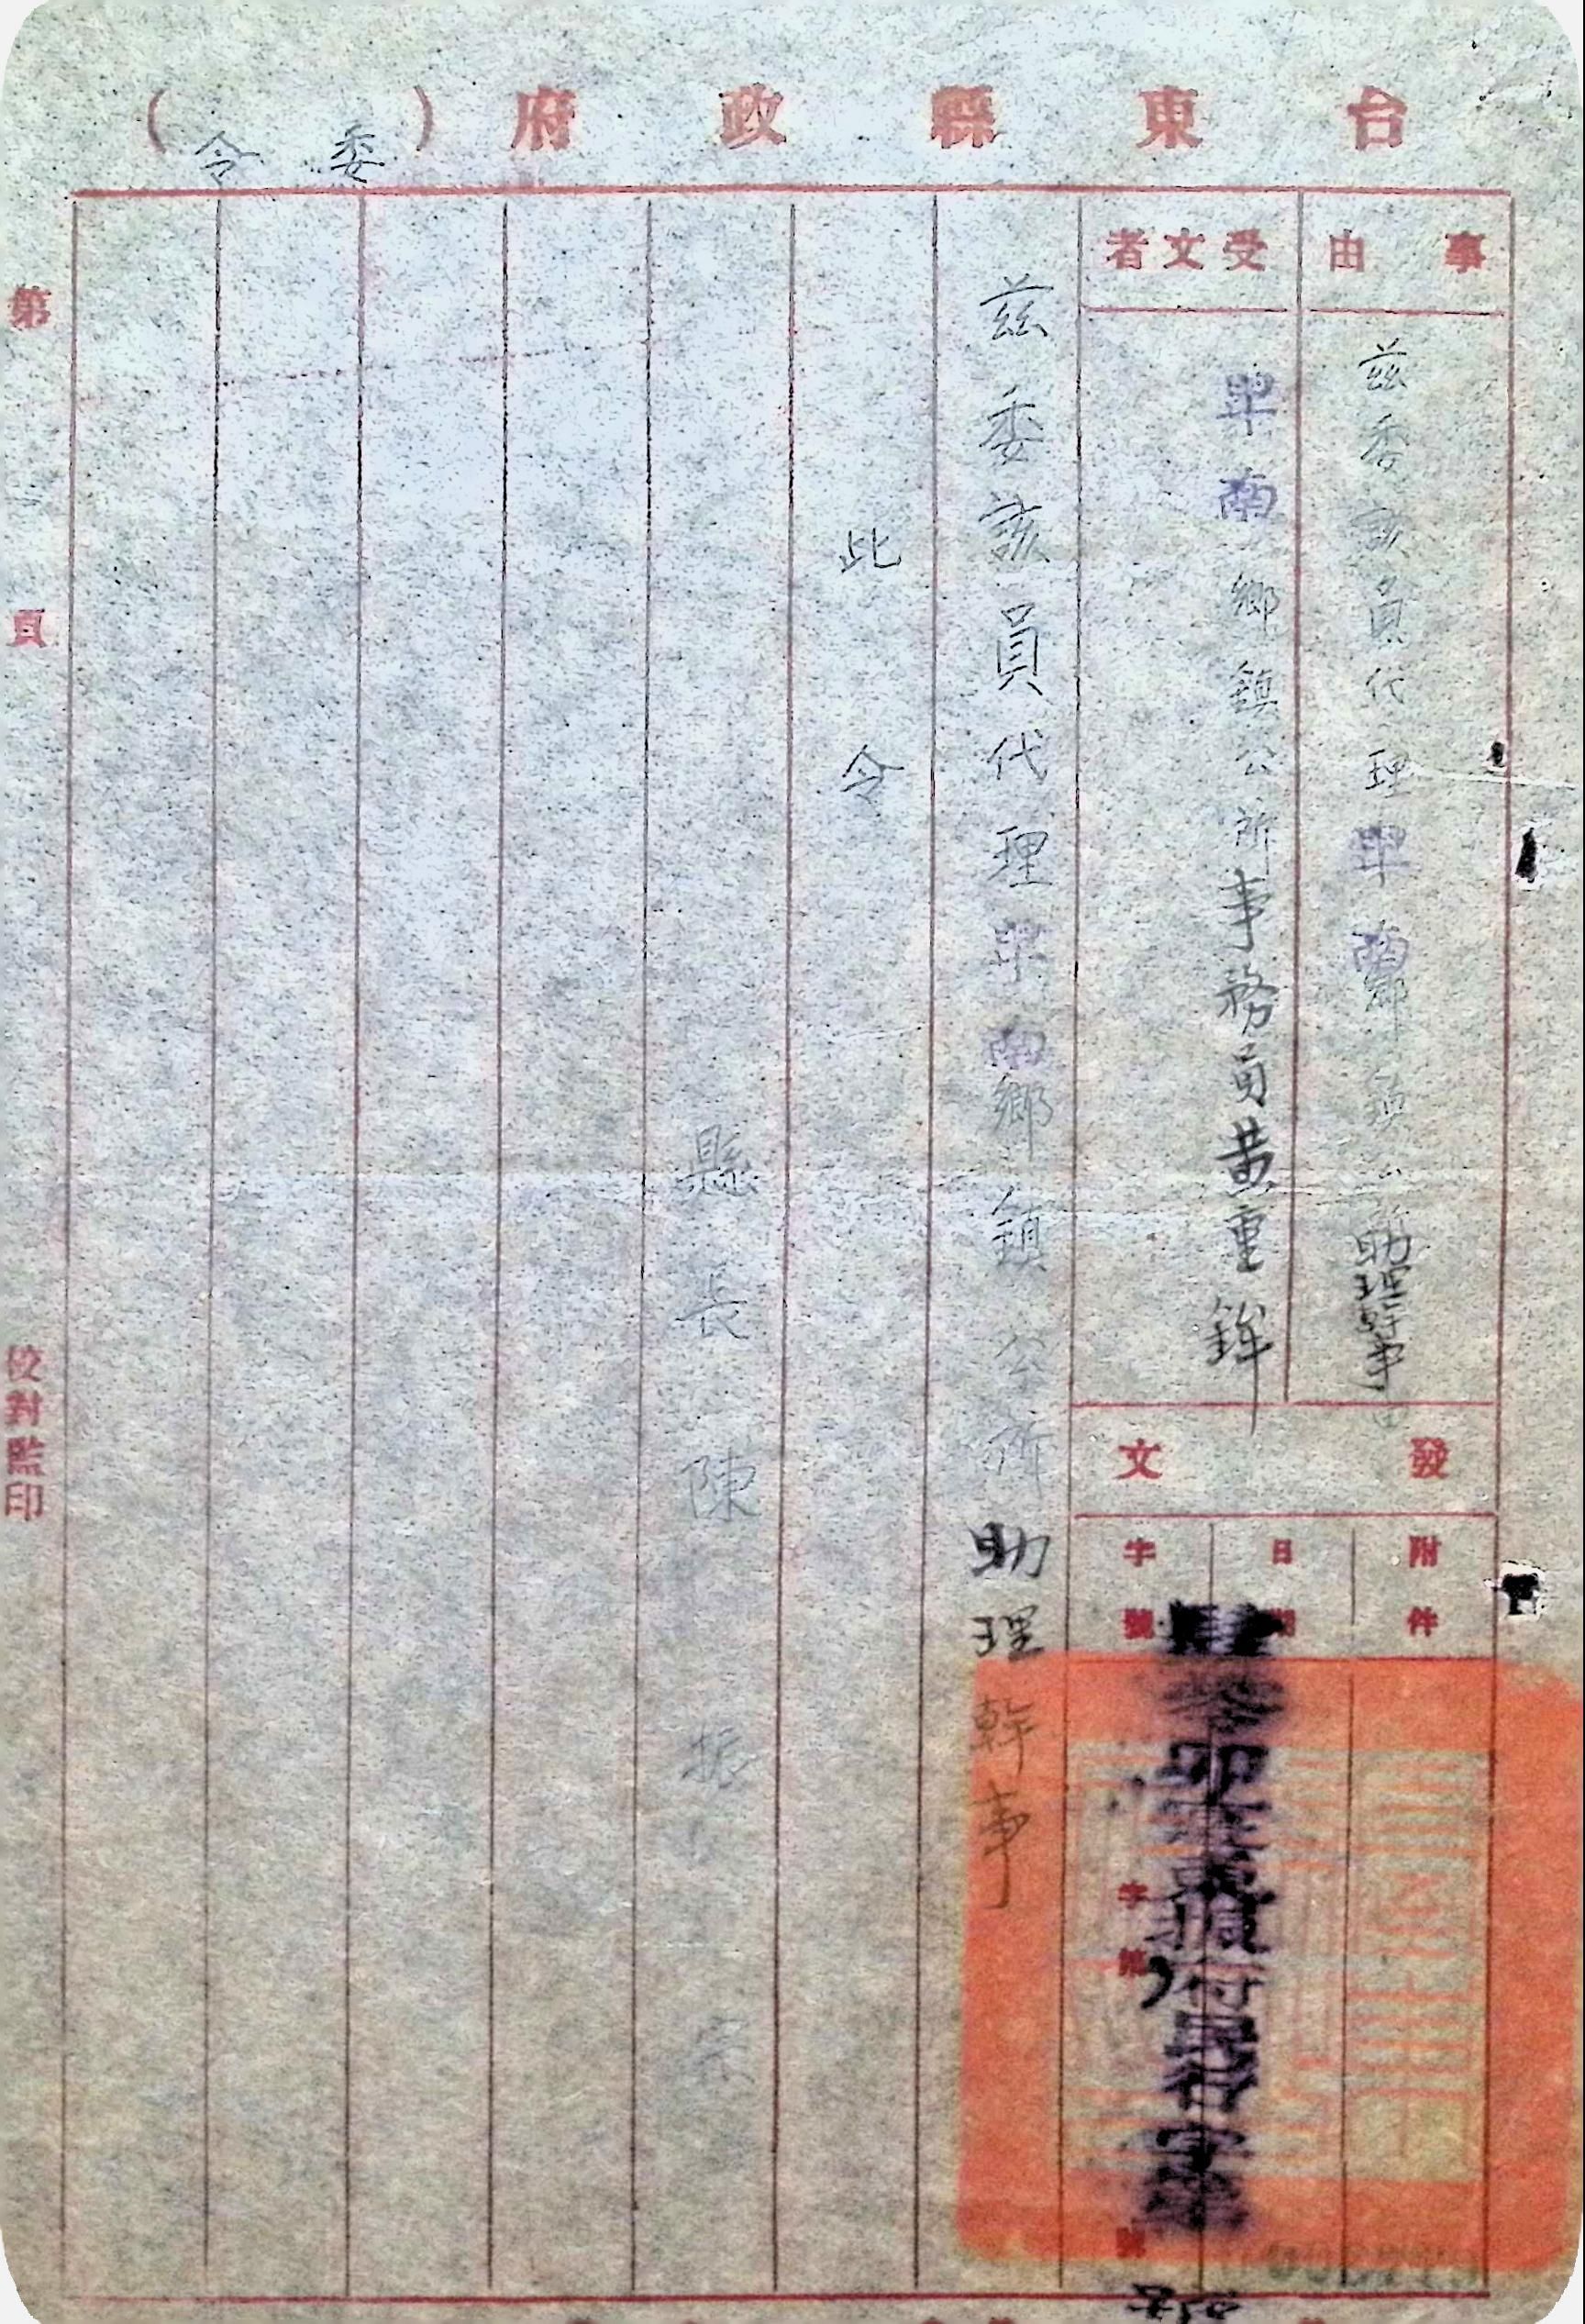 台東縣政府（委令）
事由
茲委該員代理卑南鄉鎮公所助理幹事由
受文者
卑南鄉鎮公所事務員黃重鉾
發文
附件
日期
字號
字第
號
茲委該員代理卑南鄉鎮公所助理幹事
此令
縣長陳振宗
第
頁
校對監印